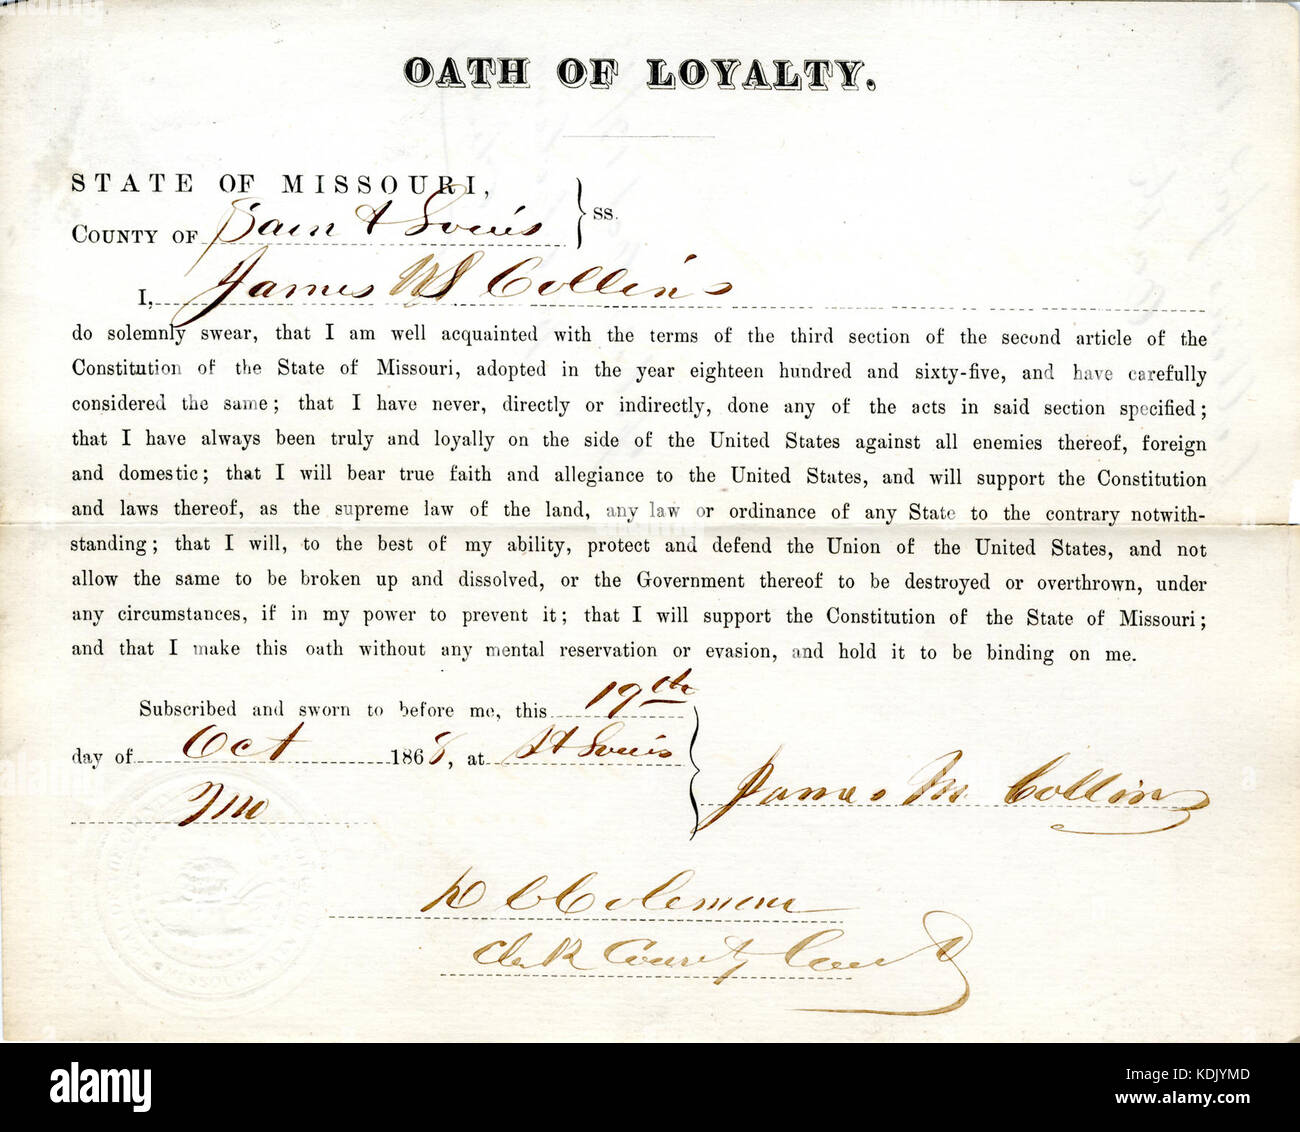 OATH OF LOYALTY.
STATE OF MISSOURI,
COUNTY OF Saint Louis } ss.
I, James M Collins
do solemnly swear, that I am well acquainted with the terms of the third section of the second article of the
Constitution of the State of Missouri, adopted in the year eighteen hundred and sixty-five, and have carefully
considered the same; that I have never, directly or indirectly, done any of the acts in said section specified;
that I have always been truly and loyally on the side of the United States against all enemies thereof, foreign
and domestic; that I will bear true faith and allegiance to the United States, and will support the Constitution
and laws thereof, as the supreme law of the land, any law or ordinance of any State to the contrary notwith-
standing; that I will, to the best of my ability, protect and defend the Union of the United States, and not
allow the same to be broken up and dissolved, or the Government thereof to be destroyed or overthrown, under
any circumstances, if in my power to prevent it; that I will support the Constitution of the State of Missouri;
and that I make this oath without any mental reservation or evasion, and hold it to be binding on me.
Subscribed and sworn to before me, this 19th
day of Oct 1868, at St Louis
Mo
James M. Collins
Coleman
Clerk County Court
alamy
Image ID: KDJYMD
www.alamy.com